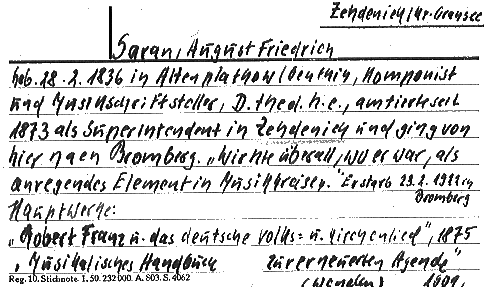 Zehdenick/Kr. Gransee
Saran, August Friedrich
Geb. 28. 2. 1836 in Altenplathow/Genthin, Komponist
und Musikschriftsteller, D. theol. h. c., amtierte seit
1873 als Superintendent in Zehdenick und ging von
hier nach Bromberg. „Wirkte überall, wo er war, als
anregendes Element in Musikkreisen." Er starb 23. 2. 1922 in
Bromberg
Hauptwerke:
„Robert Franz u. das deutsche Volks= u. Kirchenlied", 1875
„Musikalisches Handbuch zur erneuerten Agende"
Reg. 10. Stichnote. I. 50. 232000. A. 803. S. 4062